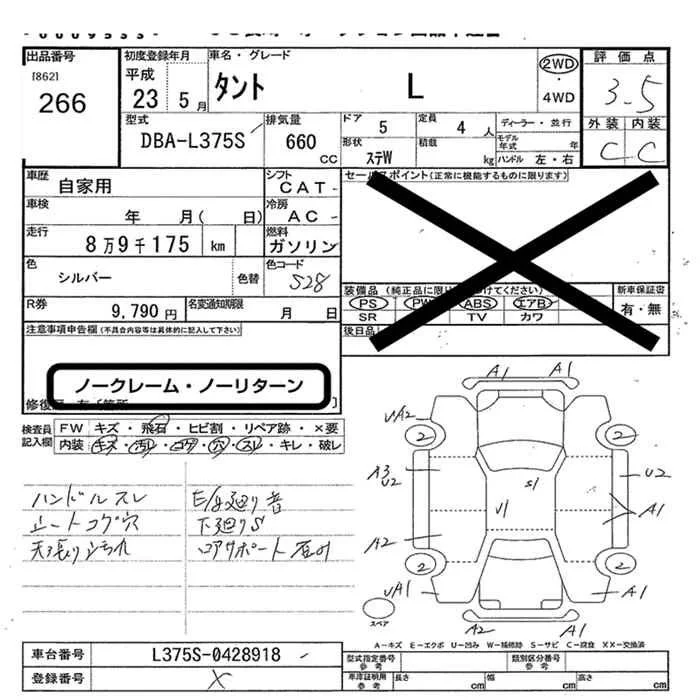 出品番号
[862]
266
初度登録年月
平成
23 5月
車名・グレード
タント L
2WD
・
4WD
評価点
3.5
外装 内装
C C
型式
DBA-L375S
排気量
660
CC
ドア 5
定員 4 人
形状 ステW
積載 kg
ディーラー・並行
モデル年式 年
ハンドル 左・右
車歴 自家用
シフト CAT
車検 年 月( 日)
冷房 AC
走行 8万9千175 km
燃料 ガソリン
色 シルバー 色替
色コード S28
R券 9,790円
名変通知期限 月 日
セールスポイント(正常に機能するものに限ります)
装備品(純正品に限り けてください)
PS PW ABS エアB
SR TV カワ
新車保証書
有・無
後日品
注意事項申告欄(不具合内容等は具体的に記入して下さい)
ノークレーム・ノーリターン
検査員記入欄
FW キズ・飛石・ヒビ割・リペア跡・×要
内装・キズ・汚レ・コゲ・穴・スレ・キレ・破レ
ハンドルスレ
シートコゲ穴
天張りヨゴレ
E/g廻り音
下廻りS
コアサポート
A1 A1
UA2
2 2
A3
U2
S1
U1
U2
A1
A2
2 2
UA1
A1
A2 A1
スペア
A-キズ E-エクボ U-凹み W-補修跡 S-サビ C-腐食 XX-交換済
車台番号 L375S-0428918
登録番号 X
型式指定番号
参考
類別区分番号
参考
車庫証明用
参考
長さ cm
幅 cm
高さ cm